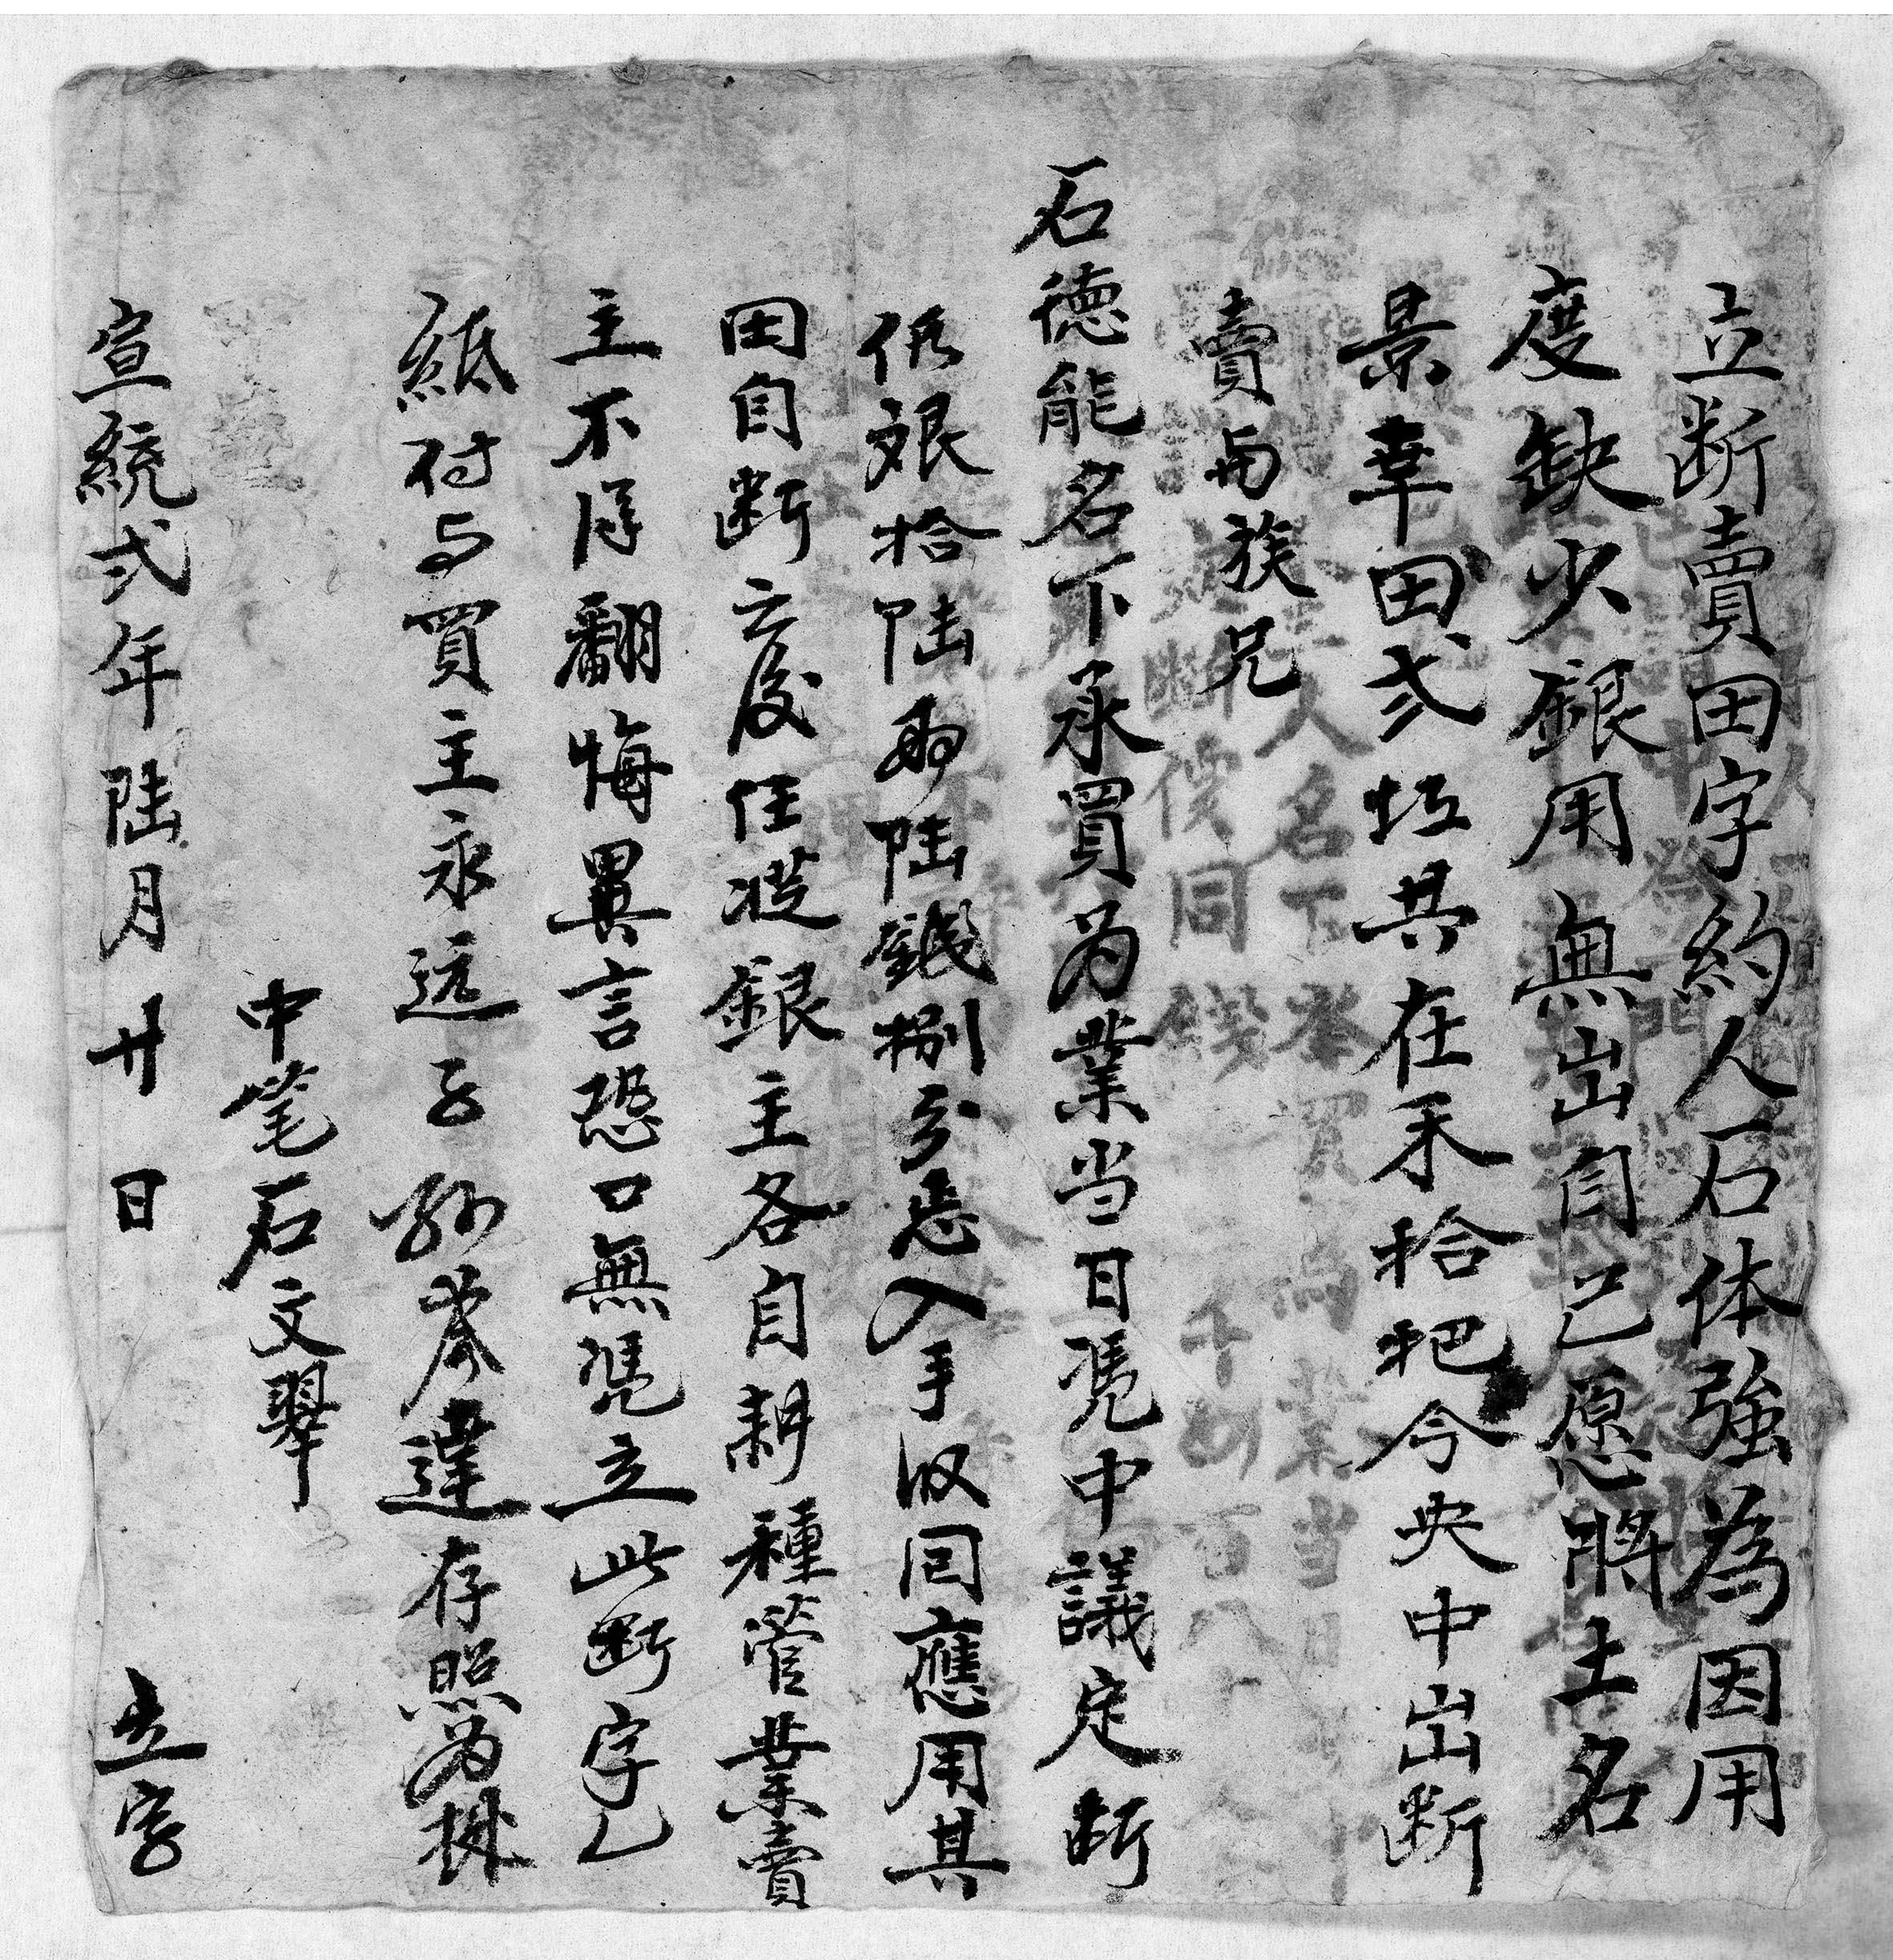 立断賣田字約人石体強為因用
度缺少銀用無出自己愿將土名
景辜田弍坵共在禾拾把今央中出断
賣与族兄
石德能名下承買为業当日凴中議定断
價銀拾陆兩陆錢捌分憑入手收回應用其
田自断之後任從銀主各自耕種管業賣
主不得翻悔異言恐口無凴立此断字乙
紙付与買主永遠子孫發達存照为據
中笔石文翠
宣統弍年陆月廿日 立字